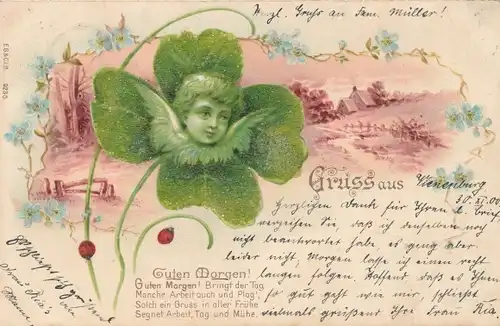 Vrgl. Gruss an Fam. Müller!
E.B.&C.i.B. 9230
Gruss aus
Vienenburg
30. XI. 00
Herzlichen Dank für Ihren l. Brief
verzeihen Sie, daß ich denselben noch
nicht beantwortet habe es ging aber
leider nicht, Morgen lasse ich einen recht
langen folgen. Hoffend daß es Ihnen
so gut geht wie mir, schließe
vielmals grüßend Ihre Frau Ria
Guten Morgen!
Guten Morgen! Bringt der Tag
Manche Arbeit auch und Plag',
Solch ein Gruss in aller Frühe
Segnet Arbeit, Tag und Mühe.